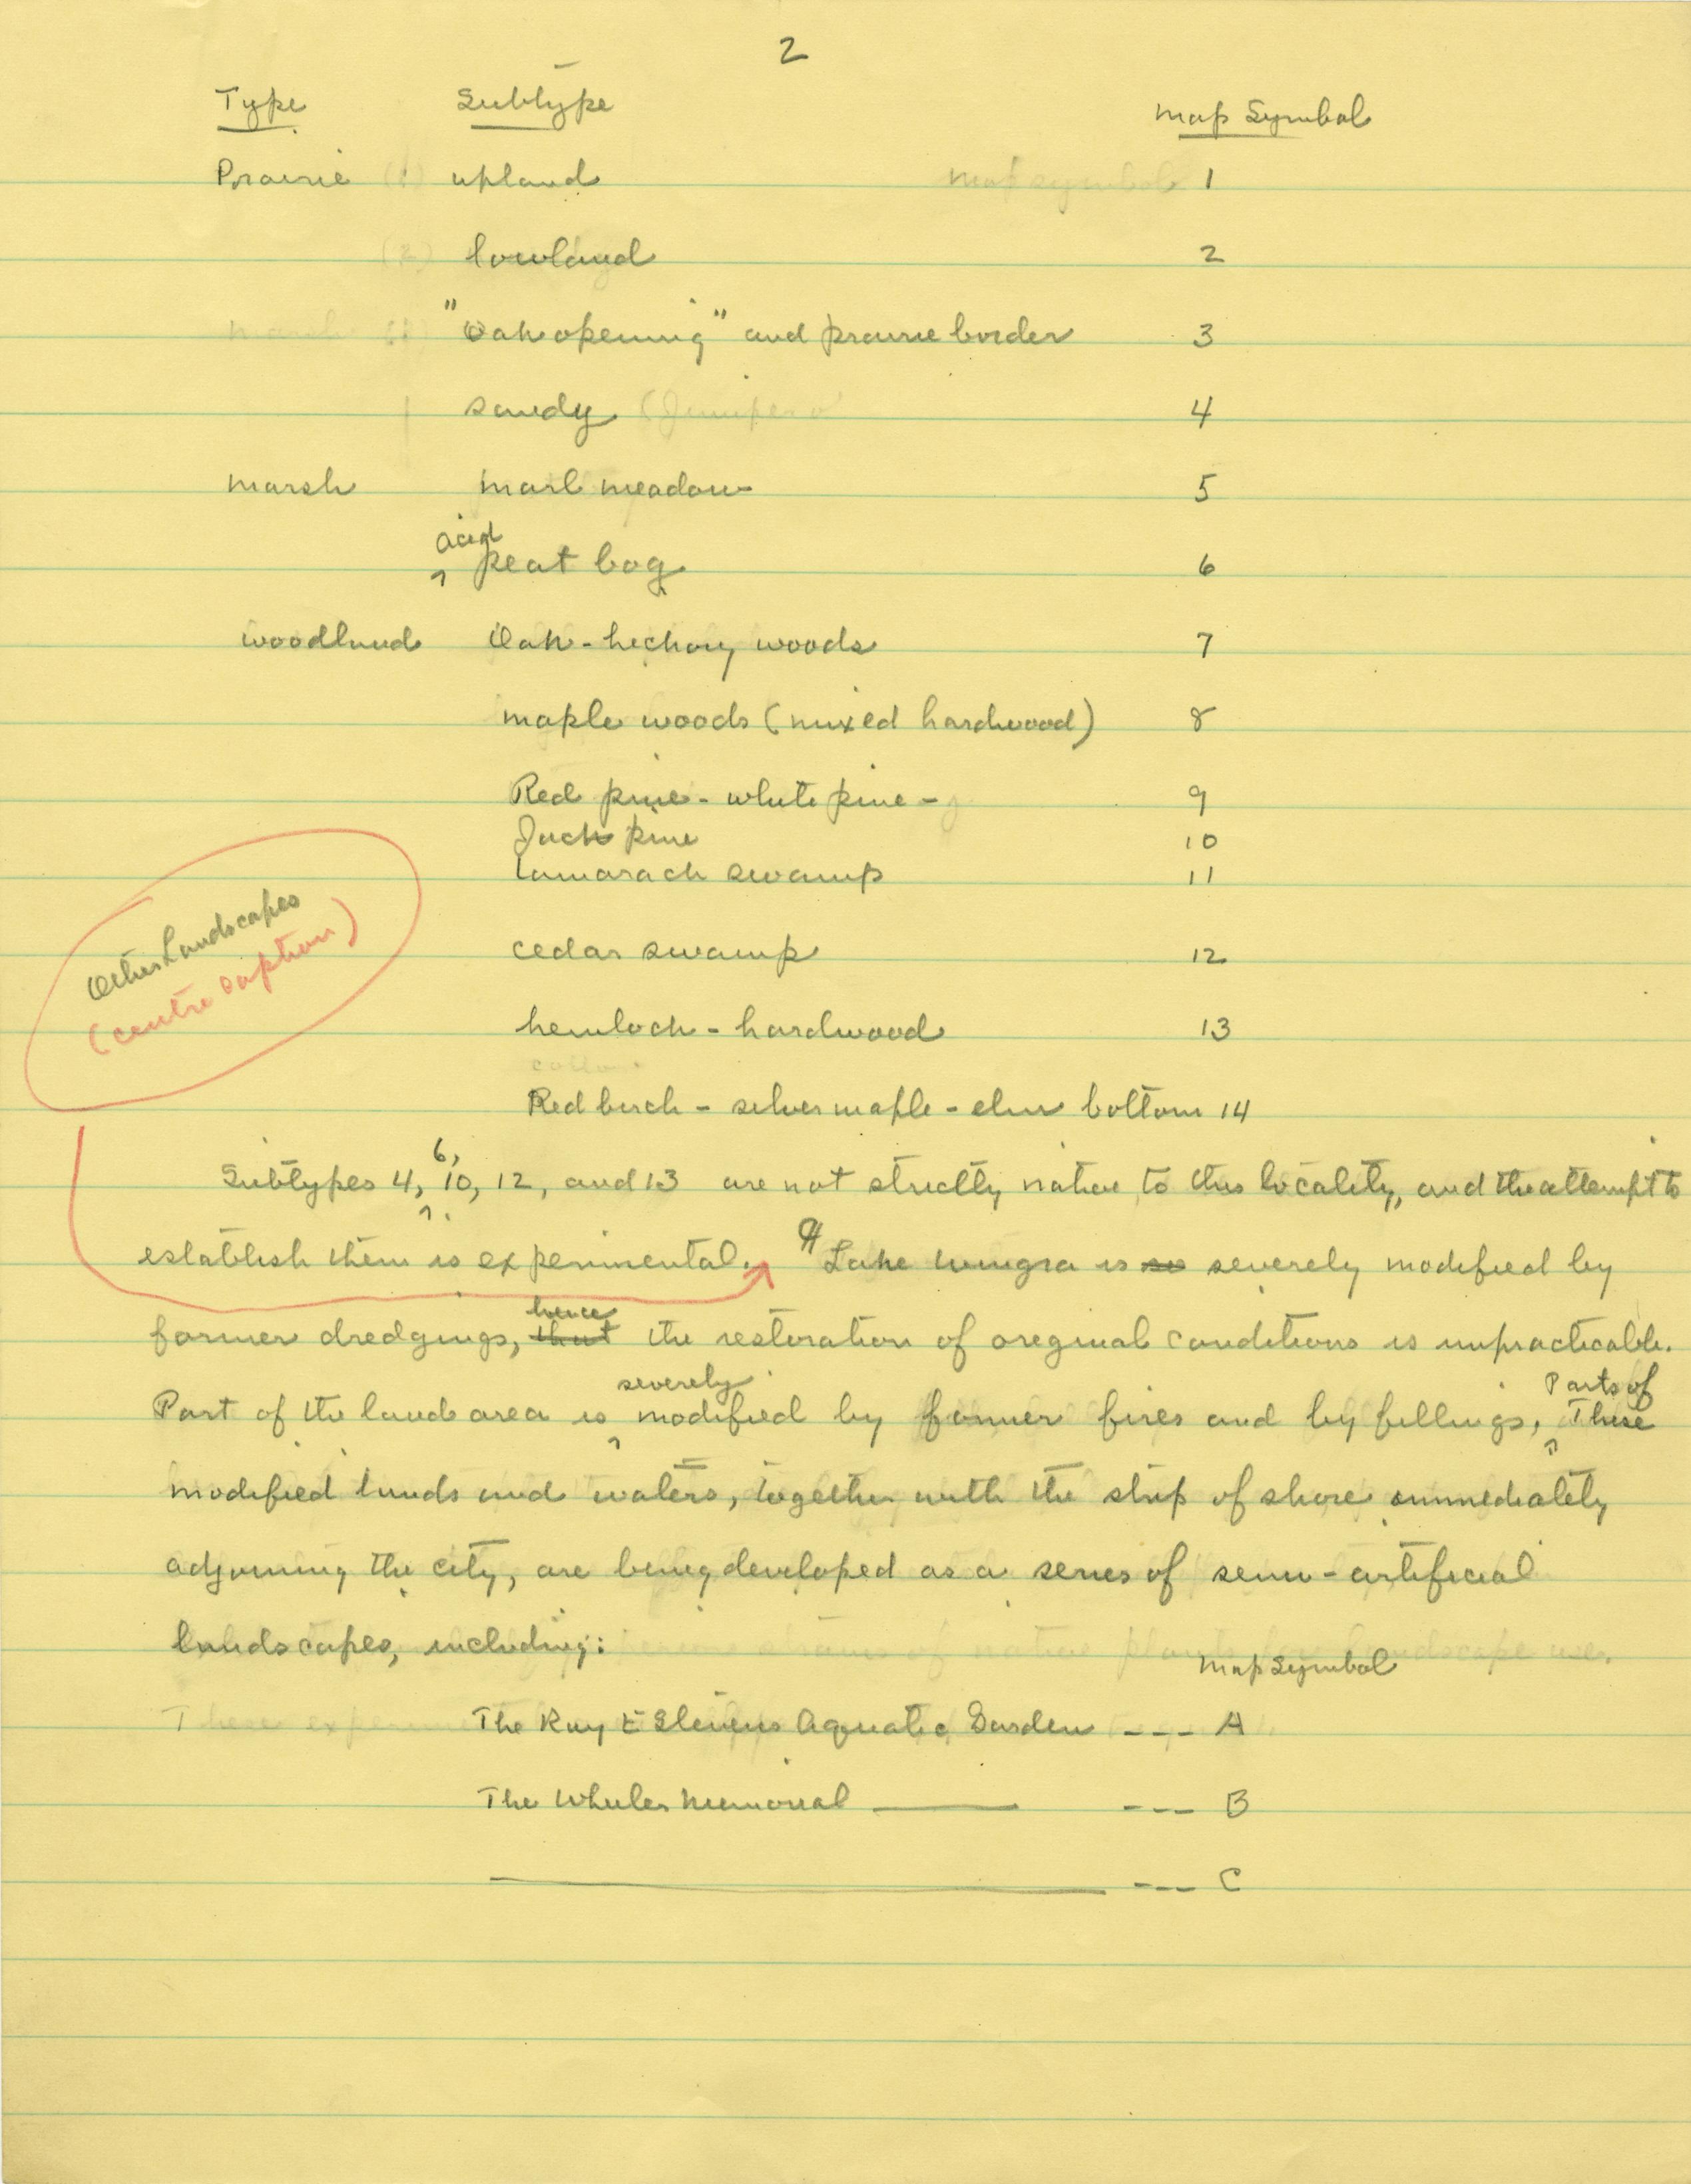 2
Type Subtype Map Symbol
Prairie (1) upland map symbol 1
(2) lowland 2
"Oak opening" and prairie border 3
sandy (Juniper 4
marsh marl meadow 5
acid
peat bog 6
woodland Oak-hickory woods 7
maple woods (mixed hardwood) 8
Red pine - white pine - 9
Jack pine 10
tamarack swamp 11
Other Landscapes
(centre caption)
cedar swamp 12
hemlock - hardwood 13
Red birch - silver maple - elm bottom 14
6,
Subtypes 4, 10, 12, and 13 are not strictly native to this locality, and the attempt to
establish them is experimental. ¶ Lake Wingra is so severely modified by
hence
former dredgings, that the restoration of original conditions is impracticable.
severely Parts of
Part of the land area is modified by former fires and by fillings. These
modified lands and waters, together with the strip of shore immediately
adjoining the city, are being developed as a series of semi-artificial
landscapes, including:
Map Symbol
The Ray E Stevens Aquatic Garden --- A
The Wheeler Memorial --- B
--- C